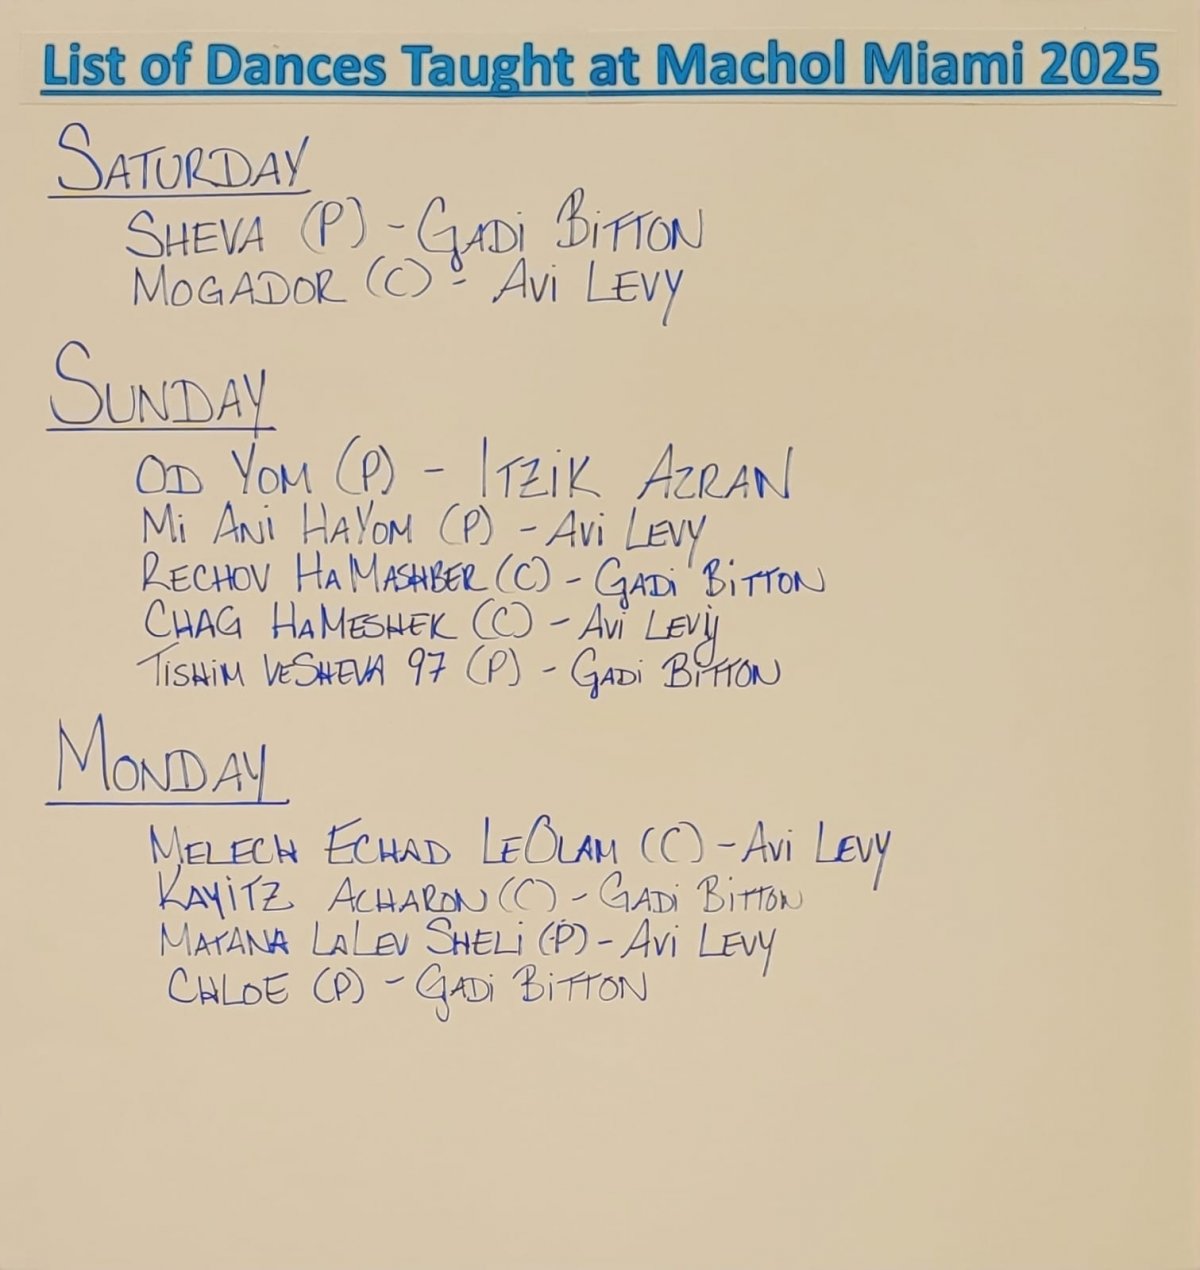 List of Dances Taught at Machol Miami 2025
SATURDAY
SHEVA (P) - GADi BiTTON
MOGADOR (C) - AVi LEVY
SUNDAY
OD YOM (P) - ITZiK AZRAN
Mi ANi HAYOM (P) - AVi LEVY
RECHOV HAMASHBER (C) - GADi BiTTON
CHAG HAMESHEK (C) - AVi LEVY
TISHiM VESHEVA 97 (P) - GADi BiTTON
MONDAY
MELECH ECHAD LEOLAM (C) - AVi LEVY
KAYiTZ ACHARON (C) - GADi BiTTON
MATANA LALEV SHELi (P) - AVi LEVY
CHLOE (P) - GADi BiTTON